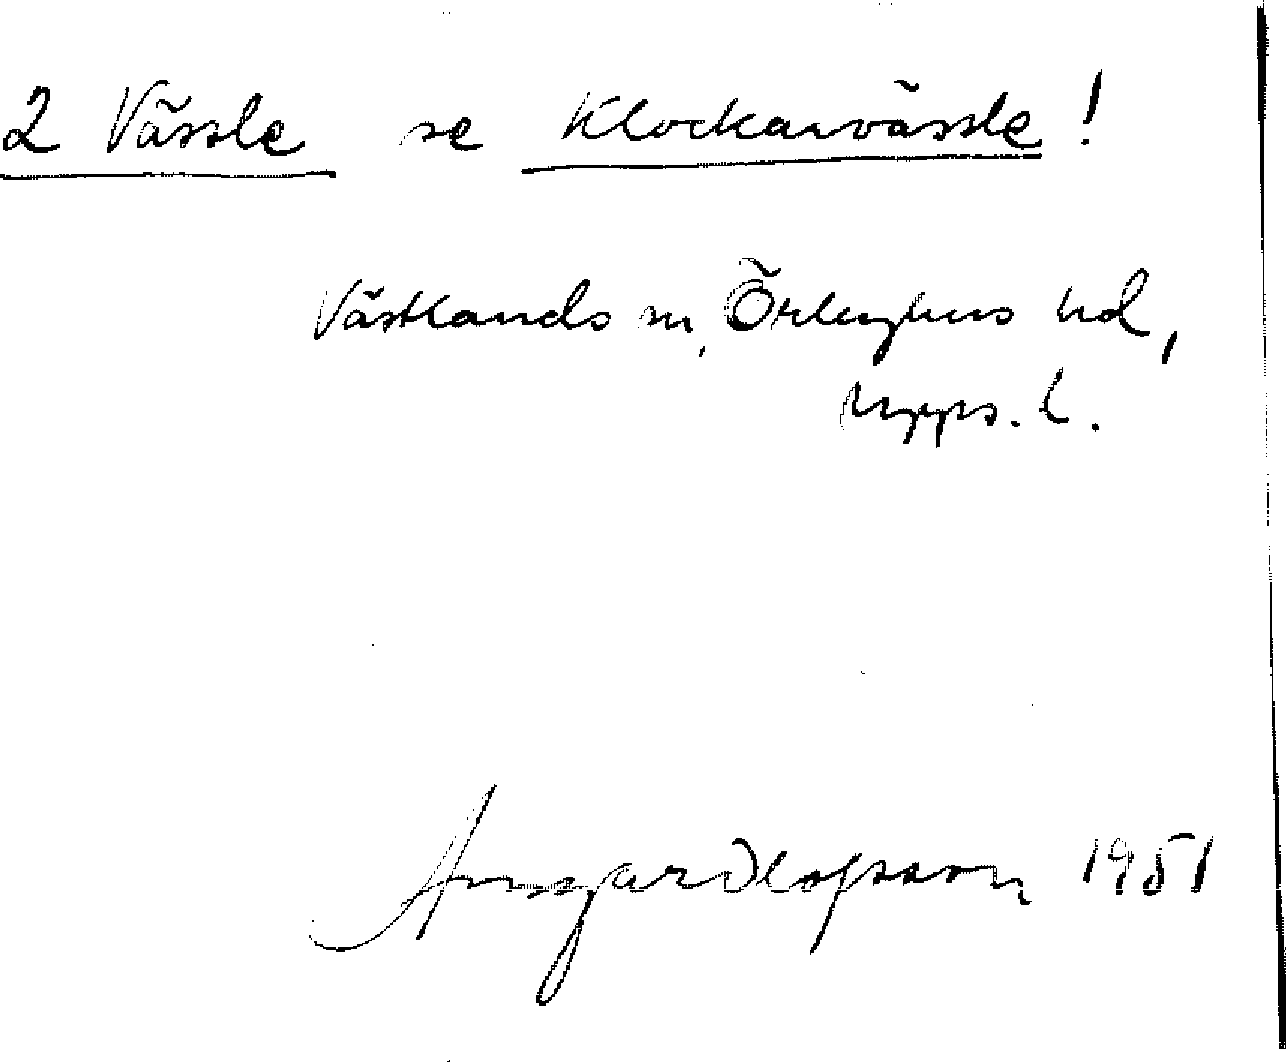 2 Vässle se Klockarvässle!
Västlands sn, Örbyhus hd,
Upps. l.
Ansgar Olofsson 1951